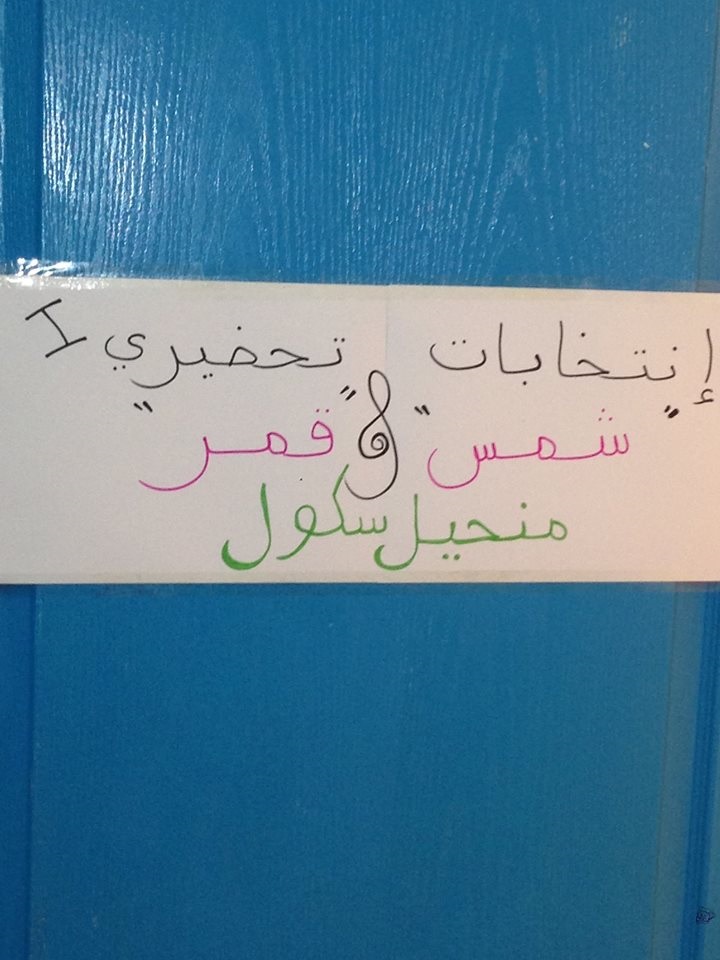 إنتخابات تحضيري I
"شمس" و "قمر"
منحيل سكول